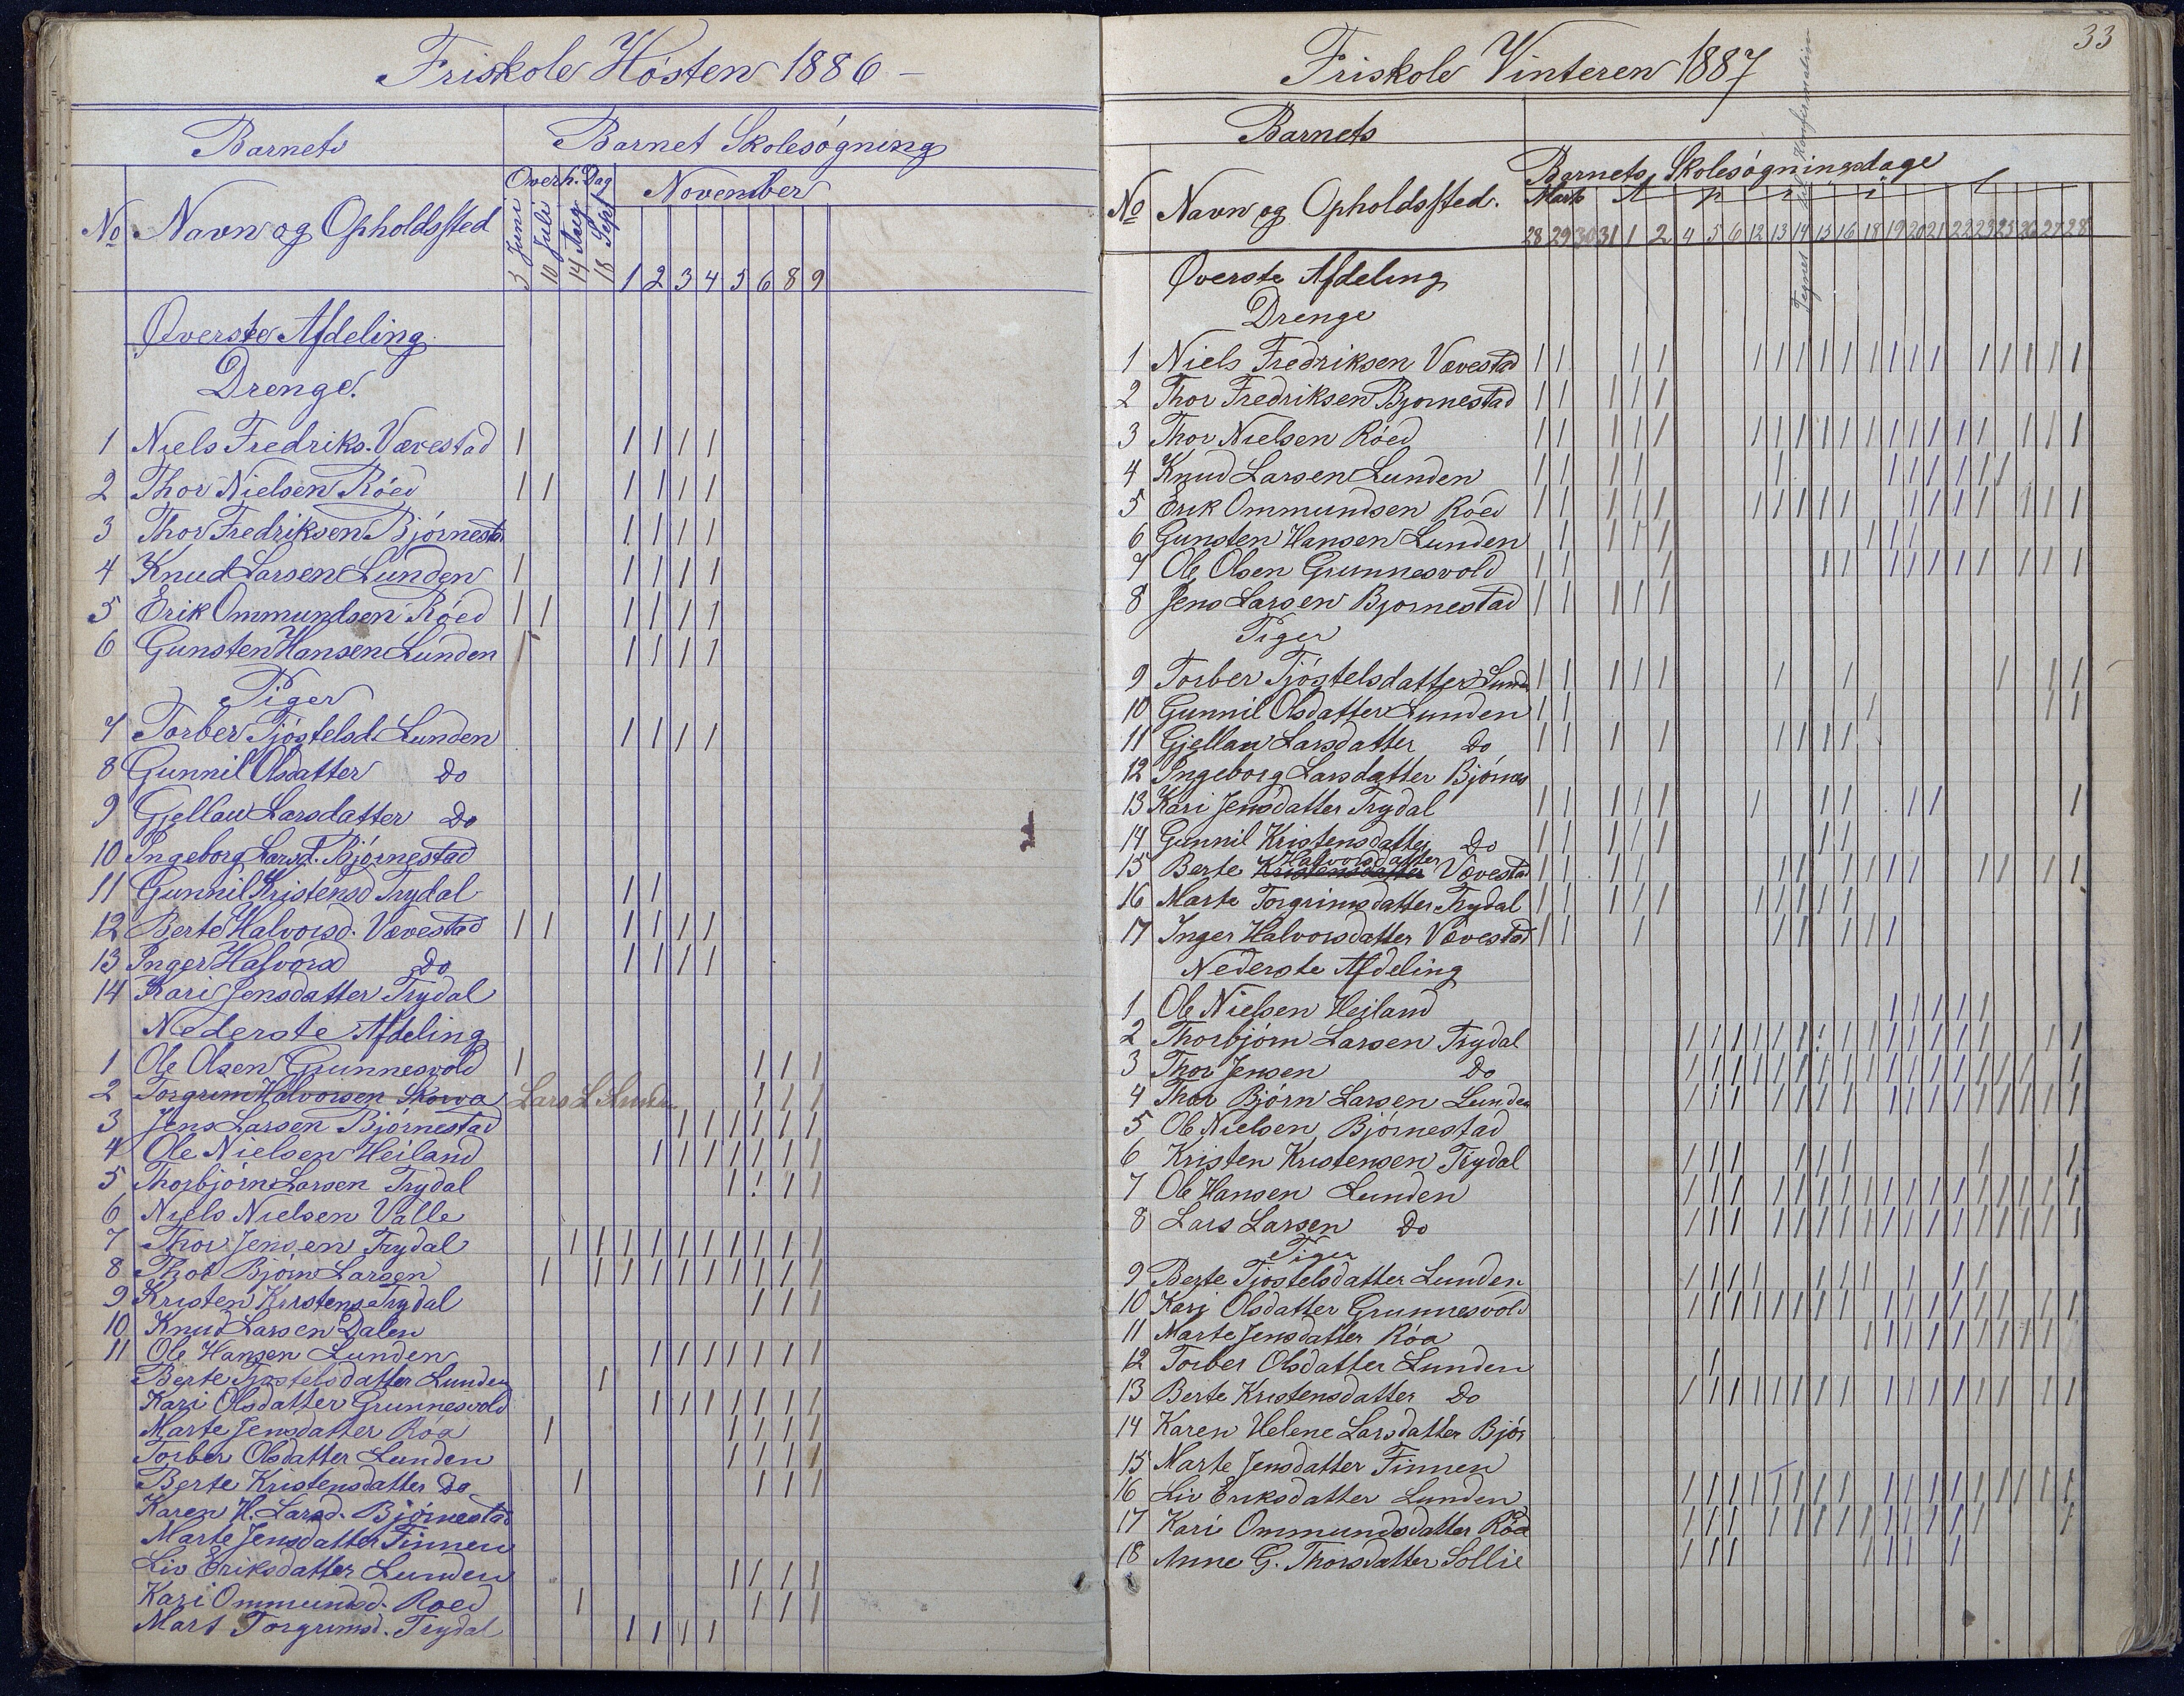 Friskole Hösten 1886 –
Barnets
Barnet Skolesögning
Overh. Dag
November
No Navn og Opholdssted
3 Juni
10 Juli
14 Aug
18 Sept
1 2 3 4 5 6 8 9
Øverste Afdeling
Drenge.
1 Niels Fredriks. Vævestad
2 Thor Nielsen Röed
3 Thor Fredriksen Bjørnesta
4 Knud Larsen Lunden
5 Erik Ommundsen Röed
6 Gunsten Hansen Lunden
Piger
7 Torber Tjöstelsd. Lunden
8 Gunnil Olsdatter Do
9 Gjellau Larsdatter Do
10 Ingeborg Larsd. Bjørnestad
11 Gunnil Kristensd Trydal
12 Berte Halvorsd. Vævestad
13 Inger Halvorsd Do
14 Kari Jensdatter Trydal
Nederste Afdeling
1 Ole Olsen Grunnesvold
2 Torgrim Halvorsen Skorva Lars L
3 Jens Larsen Bjørnestad
4 Ole Nielsen Heiland
5 Thorbjørn Larsen Trydal
6 Niels Nielsen Valle
7 Thor Jensen Trydal
8 Thor Bjørn Larsen
9 Kristen Kristens. Trydal
10 Knud Larsen Dalen
11 Ole Hansen Lunden
Berte Tjøstelsdatter Lunden
Kari Olsdatter Grunnesvold
Marte Jensdatter Röa
Torber Olsdatter Lunden
Berte Kristensdatter Do
Karen H. Larsd. Bjørnestad
Marte Jensdatter Finnen
Liv Eriksdatter Lunden
Kari Ommundsd. Roed
Mart Torgrimsd. Trydal
33
Friskole Vinteren 1887
Barnets
Barnets Skolesögningsdage
No Navn og Opholdssted.
Marts A p r i l
28 29 30 31 1 2 4 5 6 12 13 14 15 16 18 19 20 21 22 23 25 26 27 28
Øverste Afdeling
Drenge
1 Niels Fredriksen Vævestad
2 Thor Fredriksen Bjørnestad
3 Thor Nielsen Röed
4 Knud Larsen Lunden
5 Erik Ommundsen Röed
6 Gunsten Hansen Lunden
7 Ole Olsen Grunnesvold
8 Jens Larsen Bjørnestad
Piger
9 Torber Tjöstelsdatter Lunde
10 Gunnil Olsdatter Lunden
11 Gjellau Larsdatter Do
12 Ingeborg Larsdatter Bjørnes
13 Kari Jensdatter Trydal
14 Gunnil Kristensdatter Do
Halvorsdatter
15 Berte Kristensdatter Vævestad
16 Marte Torgrimsdatter Trydal
17 Inger Halvorsdatter Vævestad
Nederste Afdeling
1 Ole Nielsen Heiland
2 Thorbjørn Larsen Trydal
3 Thor Jensen Do
4 Thor Bjørn Larsen Lunden
5 Ole Nielsen Bjørnestad
6 Kristen Kristensen Trydal
7 Ole Hansen Lunden
8 Lars Larsen Do
Piger
9 Berte Tjøstelsdatter Lunden
10 Kari Olsdatter Grunnesvold
11 Marte Jensdatter Röa
12 Torber Olsdatter Lunden
13 Berte Kristensdatter Do
14 Karen Helene Larsdatter Bjør
15 Marte Jensdatter Finnen
16 Liv Eriksdatter Lunden
17 Kari Ommundsdatter Röd
18 Anne G. Thorsdatter Sollie